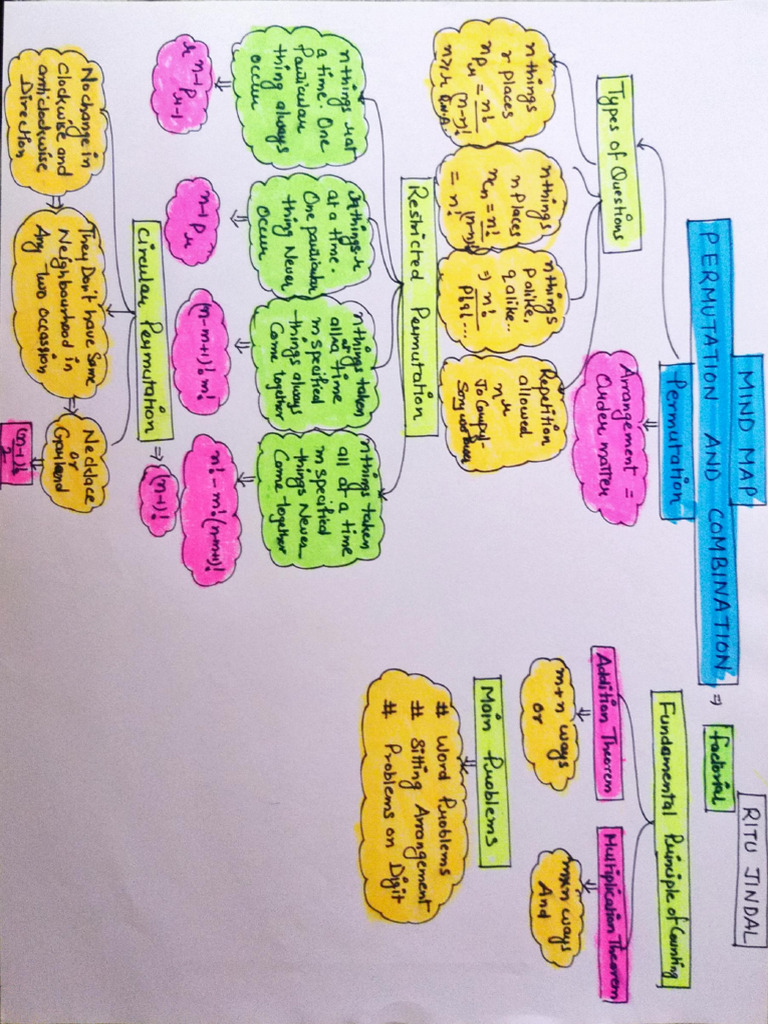 MIND MAP
RITU JINDAL
PERMUTATION AND COMBINATION ⇒ factorial
Permutation
Arrangement =
Order matter
Types of Questions
n things
r places
nPr = n!/(n-r)!
n things
n places
nPn = n!/(n-n)!
= n!
n things
p alike,
q alike...
⇒ n!/p!q!...
Repetition
allowed
n^r
Restricted Permutation
n things r at
a time. One
Particular
thing always
occur
r n-1Pr-1
n things r
at a time.
One particular
thing Never
occur
n-1Pr
n things taken
all at a time
m specified
things always
Come together
(n-m+1)! m!
n things taken
all at a time
m specified
things Never
Come together
n! - m!(n-m+1)!
Circular Permutation ⇒ (n-1)!
No change in
Clockwise and
anticlockwise
Direction
They Don't have Same
Neighbourhood in
Any two occassion
Necklace
or
Garland
(n-1)!/2
Fundamental Principle of Counting
Addition Theorem
m+n ways
or
Multiplication Theorem
m×n ways
And
Main Problems
# Word Problems
# Sitting Arrangement
# Problems on Digit